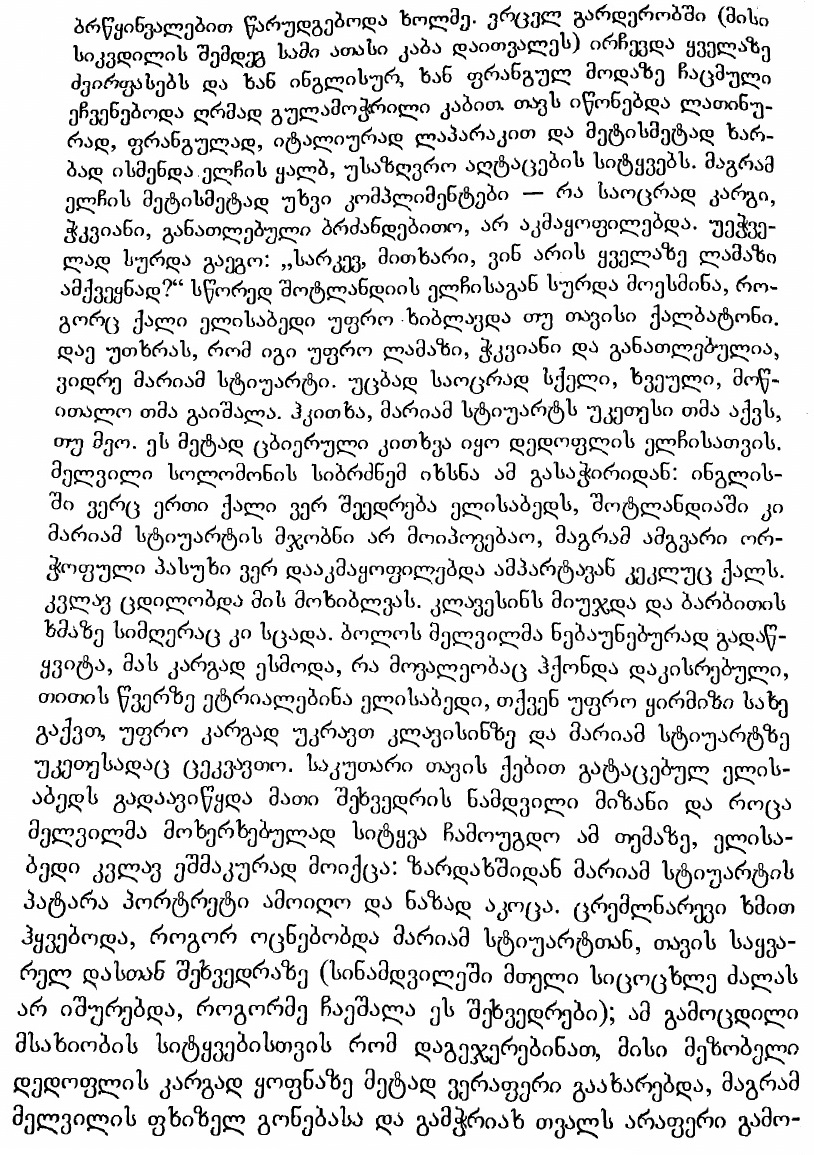 ბრწყინვალებით წარუდგებოდა ხოლმე. ვრცელ გარდერობში (მისი
სიკვდილის შემდეგ სამი ათასი კაბა დაითვალეს) ირჩევდა ყველაზე
ძვირფასებს და ხან ინგლისურ, ხან ფრანგულ მოდაზე ჩაცმული
ეჩვენებოდა ღრმად გულამოჭრილი კაბით. თავს იწონებდა ლათინუ-
რად, ფრანგულად, იტალიურად ლაპარაკით და მეტისმეტად ხარ-
ბად ისმენდა ელჩის ყალბ, უსაზღვრო აღტაცების სიტყვებს. მაგრამ
ელჩის მეტისმეტად უხვი კომპლიმენტები — რა საოცრად კარგი,
ჭკვიანი, განათლებული ბრძანდებითო, არ აკმაყოფილებდა. უეჭვე-
ლად სურდა გაეგო: „სარკევ, მითხარი, ვინ არის ყველაზე ლამაზი
ამქვეყნად?“ სწორედ შოტლანდიის ელჩისაგან სურდა მოესმინა, რო-
გორც ქალი ელისაბედი უფრო ხიბლავდა თუ თავისი ქალბატონი.
დაე უთხრას, რომ იგი უფრო ლამაზი, ჭკვიანი და განათლებულია,
ვიდრე მარიამ სტიუარტი. უცბად საოცრად სქელი, ხვეული, მოწ-
ითალო თმა გაიშალა. ჰკითხა, მარიამ სტიუარტს უკეთესი თმა აქვს,
თუ მეო. ეს მეტად ცბიერული კითხვა იყო დედოფლის ელჩისათვის.
მელვილი სოლომონის სიბრძნემ იხსნა ამ გასაჭირიდან: ინგლის-
ში ვერც ერთი ქალი ვერ შეედრება ელისაბედს, შოტლანდიაში კი
მარიამ სტიუარტის მჯობნი არ მოიპოვებაო, მაგრამ ამგვარი ორ-
ჭოფული პასუხი ვერ დააკმაყოფილებდა ამპარტავან კეკლუც ქალს.
კვლავ ცდილობდა მის მოხიბლვას. კლავესინს მიუჯდა და ბარბითის
ხმაზე სიმღერაც კი სცადა. ბოლოს მელვილმა ნებაუნებურად გადაწ-
ყვიტა, მას კარგად ესმოდა, რა მოვალეობაც ჰქონდა დაკისრებული,
თითის წვერზე ეტრიალებინა ელისაბედი, თქვენ უფრო ყირმიზი სახე
გაქვთ, უფრო კარგად უკრავთ კლავისინზე და მარიამ სტიუარტზე
უკეთესადაც ცეკვავთო. საკუთარი თავის ქებით გატაცებულ ელის-
აბედს გადაავიწყდა მათი შეხვედრის ნამდვილი მიზანი და როცა
მელვილმა მოხერხებულად სიტყვა ჩამოუგდო ამ თემაზე, ელისა-
ბედი კვლავ ეშმაკურად მოიქცა: ზარდახშიდან მარიამ სტიუარტის
პატარა პორტრეტი ამოიღო და ნაზად აკოცა. ცრემლნარევი ხმით
ჰყვებოდა, როგორ ოცნებობდა მარიამ სტიუარტთან, თავის საყვა-
რელ დასთან შეხვედრაზე (სინამდვილეში მთელი სიცოცხლე ძალას
არ იშურებდა, როგორმე ჩაეშალა ეს შეხვედრები); ამ გამოცდილი
მსახიობის სიტყვებისთვის რომ დაგეჯერებინათ, მისი მეზობელი
დედოფლის კარგად ყოფნაზე მეტად ვერაფერი გაახარებდა, მაგრამ
მელვილის ფხიზელ გონებასა და გამჭრიახ თვალს არაფერი გამო-